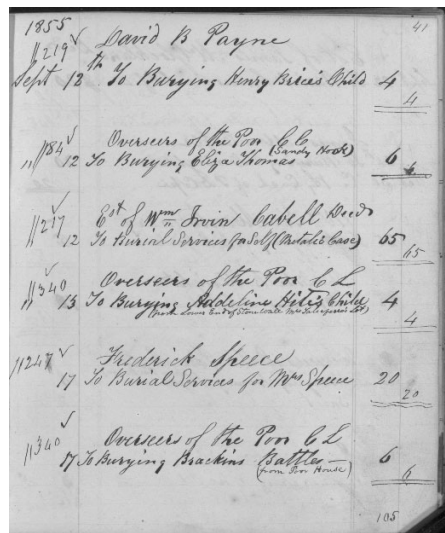 1855
41
//219 David B Payne
Sept 12th To Burying Henry Brice's Child 4
4
//184 Overseers of the Poor C C
(Sandy Hook)
" 12 To Burying Eliza Thomas 6
6
//217 Est of Wm Irvin Cabell Decd
12 To Burial Services for Self (Metalic Case) 65
65
//340 Overseers of the Poor C L
13 To Burying Addeline Hite's Child 4
(from Lower End of Stonewall Mrs Lot)
4
//247 Frederick Speece
17 To Burial Services for Mrs Speece 20
20
//340 Overseers of the Poor C L
17 To Burying Brackins Battles 6
(from Poor House)
6
105